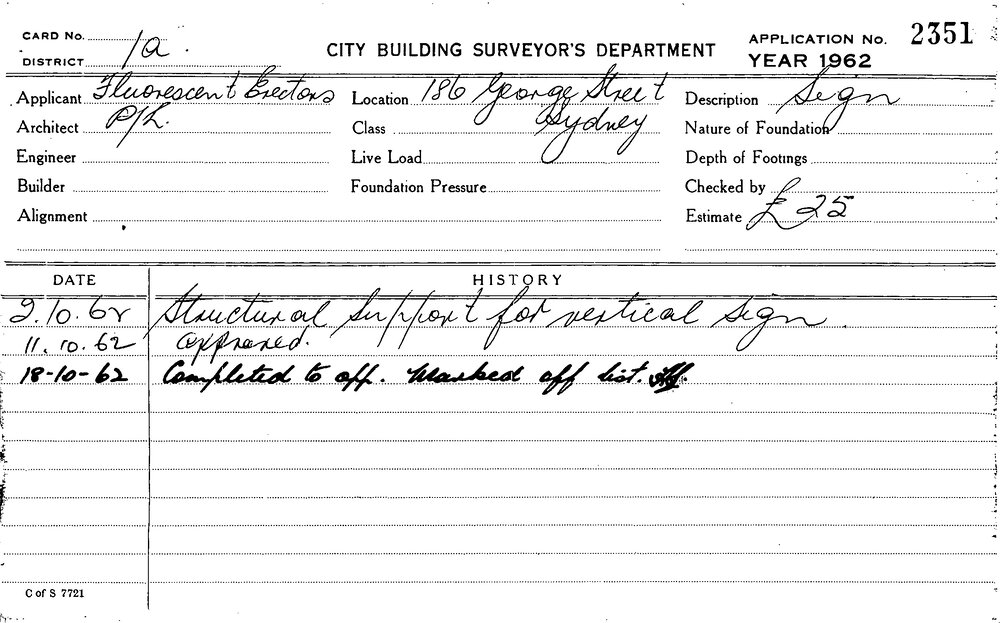 CARD No.
1a.
DISTRICT
CITY BUILDING SURVEYOR'S DEPARTMENT
APPLICATION No. 2351
YEAR 1962
Applicant Fluorescent Erectors
P/L.
Location 186 George Street
Sydney
Description Sign
Architect
Class
Nature of Foundation
Engineer
Live Load
Depth of Footings
Builder
Foundation Pressure
Checked by
Alignment
Estimate £25
DATE HISTORY
2.10.62 Structural support for vertical sign.
11.10.62 approved.
18-10-62 Completed to app. Marked off list.
C of S 7721